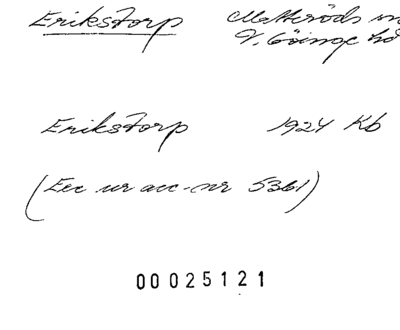 Erikstorp Matteröds
V. Göinge
Erikstorp 1924 Kb
(Exc ur acc-nr 5361)
00025121